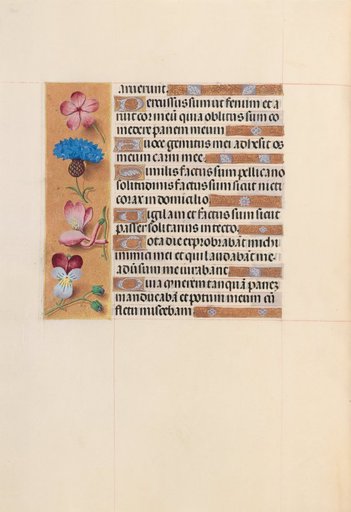 aruerunt.
Percussus sum ut fenum et a
ruit cor meu quia oblitus sum co
medere panem meum
A voce gemitus mei adhesit os
meum carni mee.
Similis factus sum pellicano
solitudinis factus sum sicut nicti
corax in domicilio
Vigilavi et factus sum sicut
passer solitarius in tecto.
Tota die exprobrabāt michi
inimici mei et qui laudabāt me
adūsum me iurabant.
Quia cinerem tanquā panez
manducabā et potum meum cū
fletu miscebam.